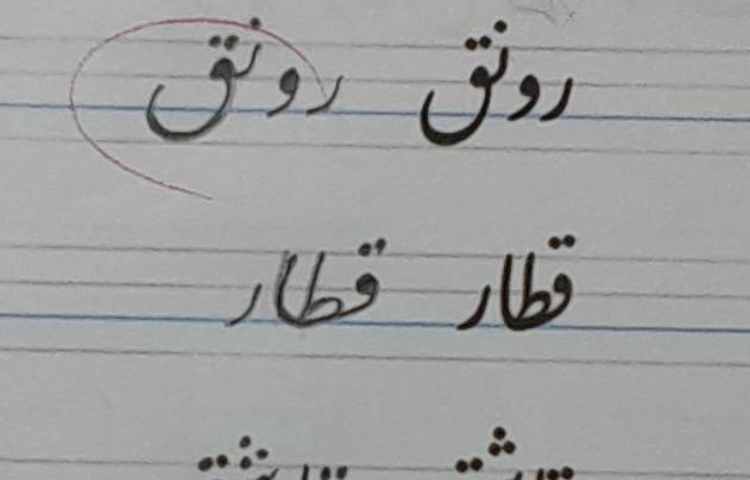 رونق رونق
قطار قطار